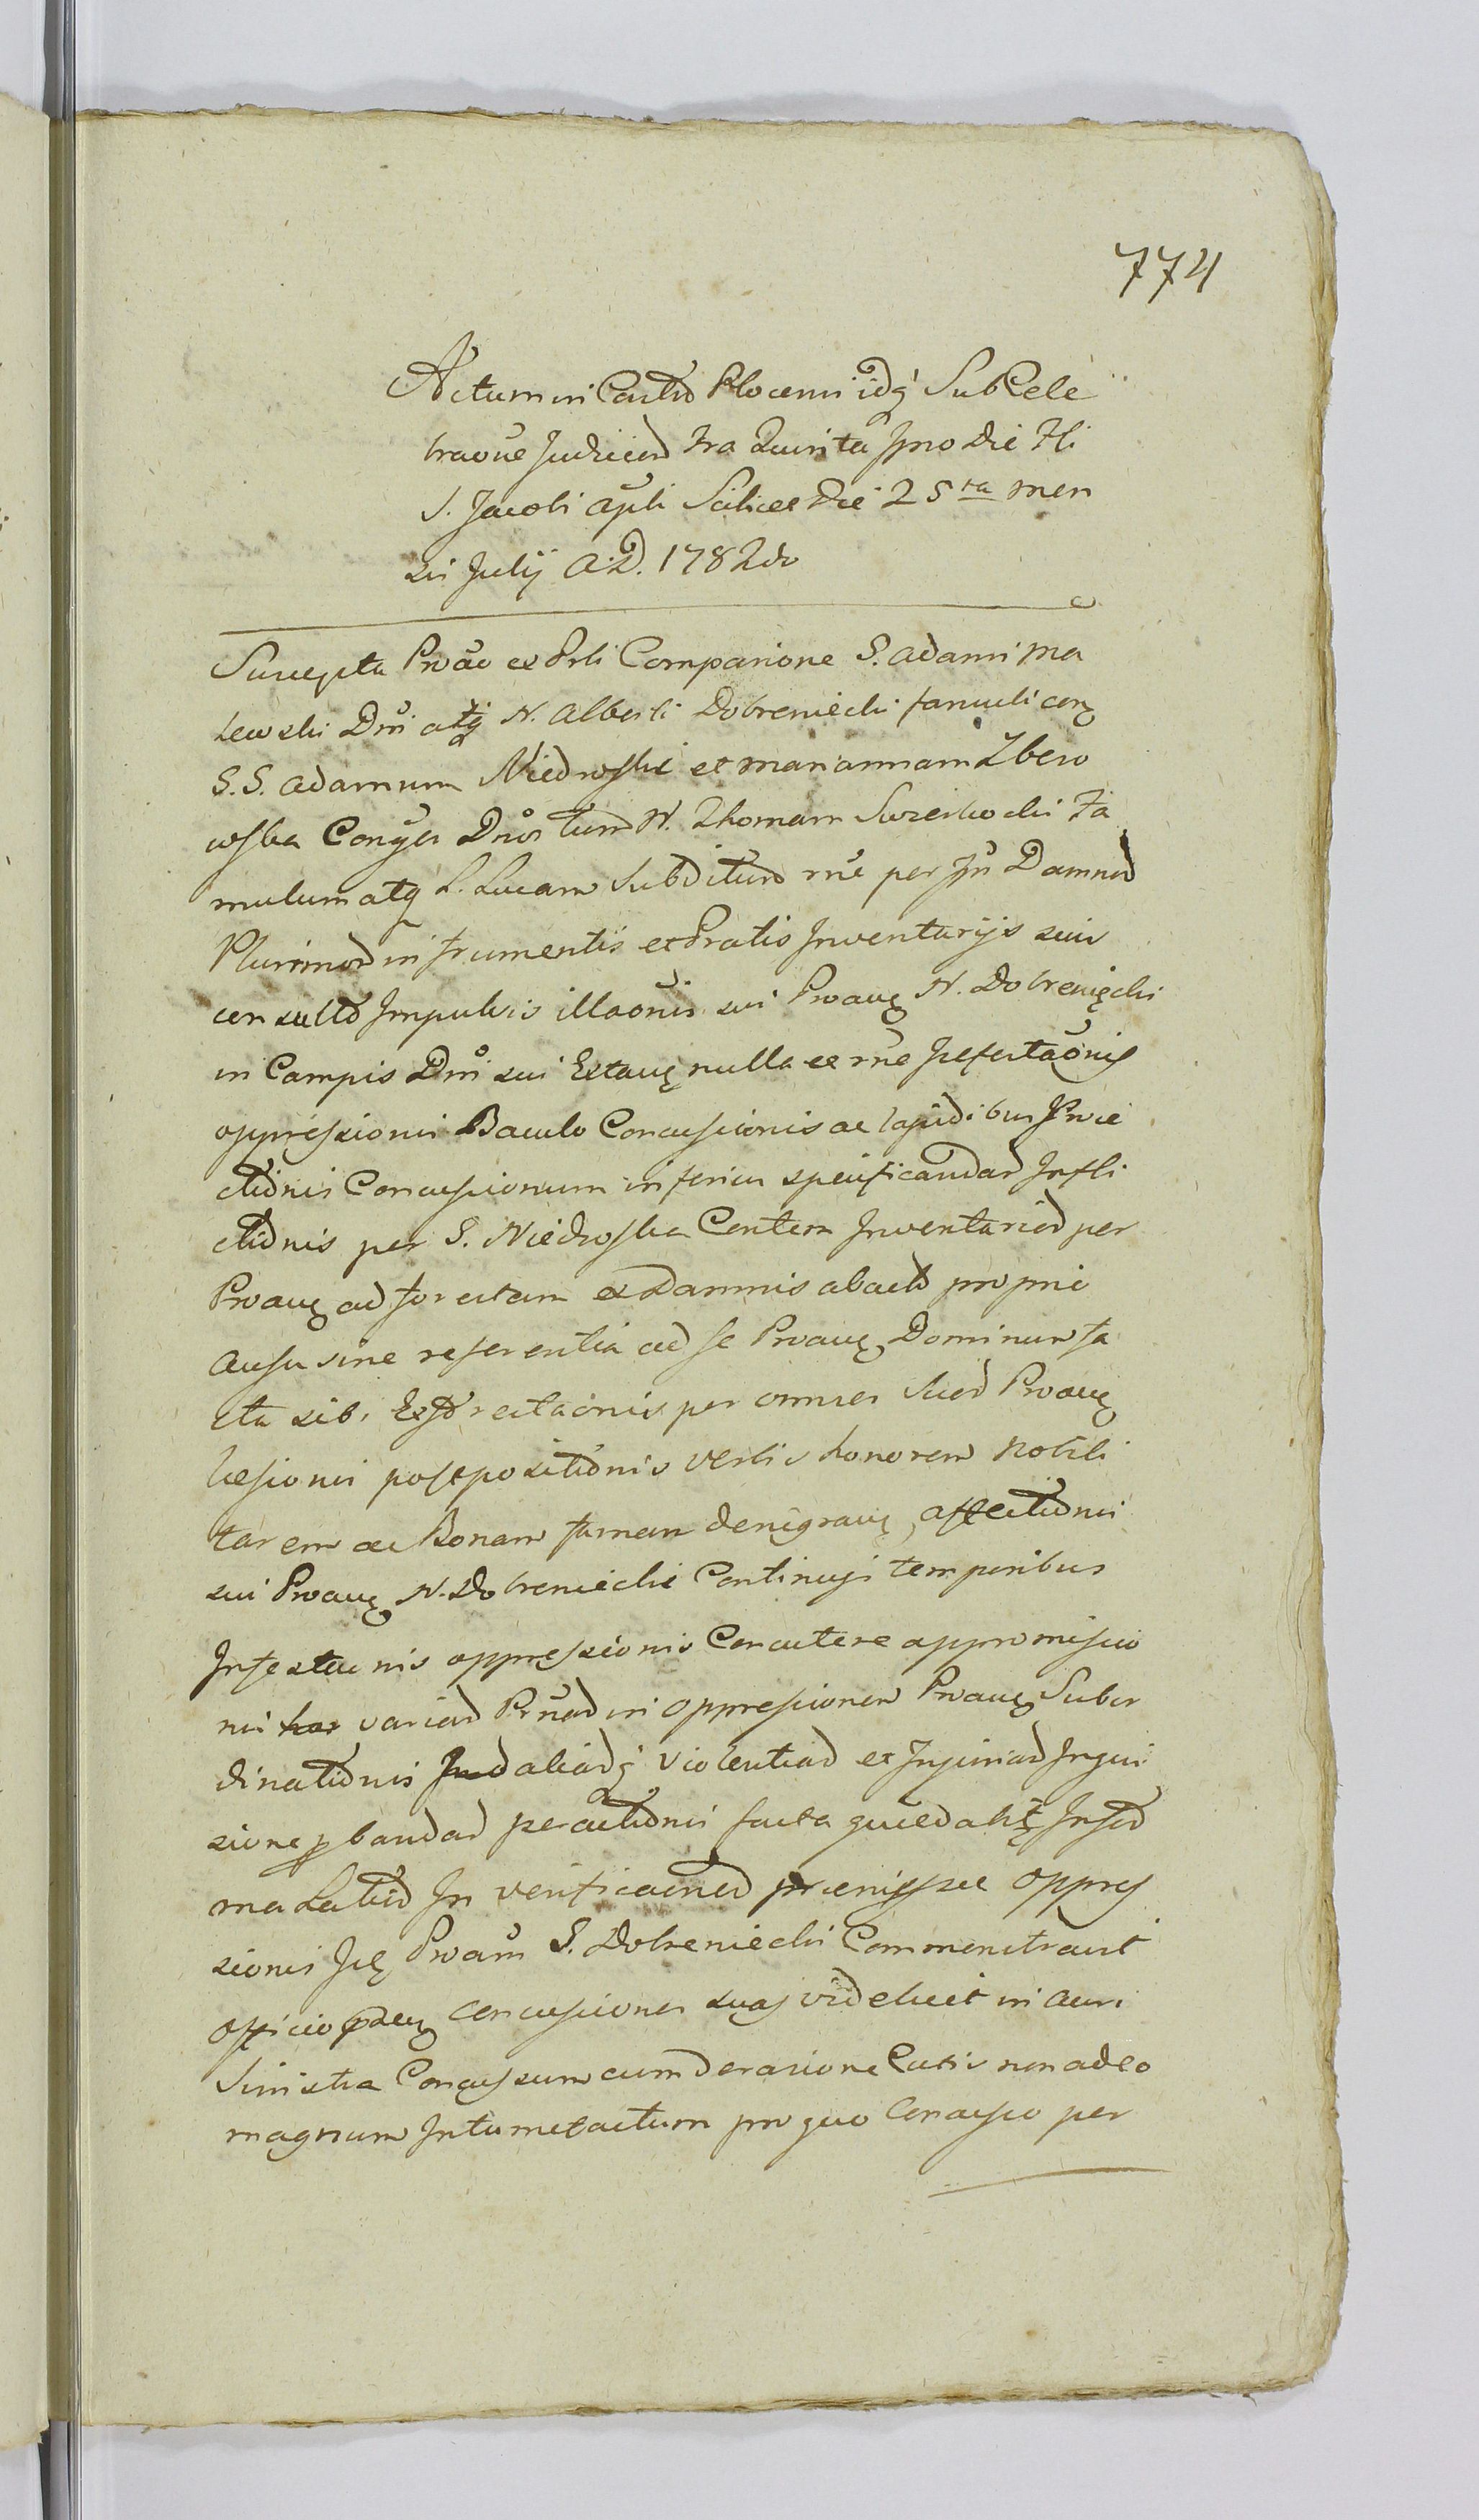 774
Actum in Castro Plocensi idq Sub Cele
braoñe Judicior Fra Quinta Ipso die Fti
S. Jacobi Apli Scilicet Die 25ta Men
sis Julij A.D. 1782do
Suscepta Proāo ex Prti Comparione S. Adami Ma
lewski Dni atq N. Alberti Dobreniecki famuli con
S.S. Adamum Niedroski et Mariannam Zbero
wska Conges Dnos tum N. Thomam Swierkocki Fa
mulum atq L. Lucam Subditum rne per Ipsos Damnor
Plurimor in frumentis et Pratis Inventarijs suis
consulto Impulsis illaonis sui Proang N. Dobreniecki
in Campis Dni sui Extang nulla ex rne Infestaõnis
oppressionis Baculo Concussionis ac lapidibus Proie
ctionis Concussionum inferius specificandar Infli
ctionis per S. Niedroska Contem Inventarior per
Proang ad forestam ex Damnis abacto proprio
Ausu sine referentia ad se Proang Dominum fa
cta sibi Expo rectaonis per omnes Suos Proang
laesionis postpositionis Verbis honorem nobili
tarem ac Bonam famam denigrang, affectionis
sui Proang N. Dobreniecki Continuis temporibus
Infestaonis oppressionis Concutere appromissio
nis variar Prnar in oppressionem Proang Subor
dinationis aliarq Violentiar et Injuriar Inqui
sione pbandar peractionis facta quaedalis
ma Latio In verificaoned praemissae oppres
sionis Ide Proans S. Dobreniecki Commonstravit
Officio pdeng concussiones suas videlicet in Auri
Sinistra Concussum cum derasione Cutis non adeo
magnum Intumefactum pro quo Concusso per